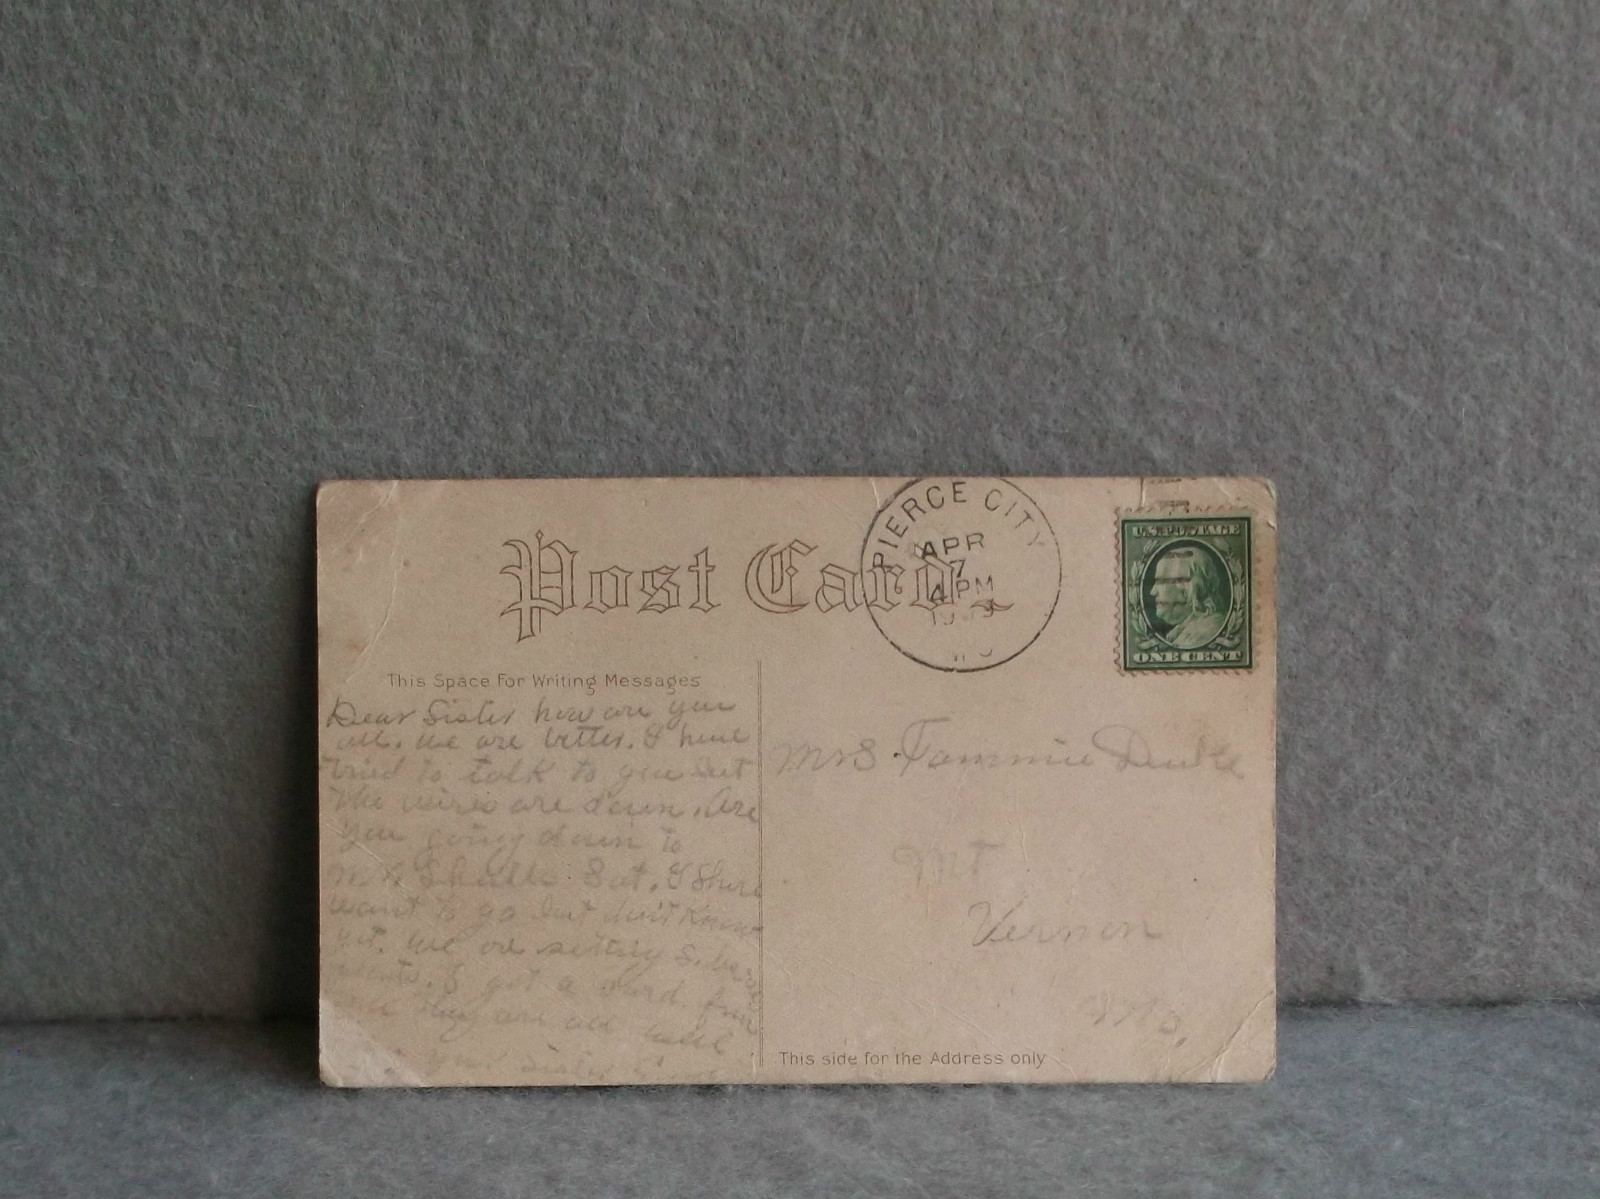 Post Card
PIERCE CITY
APR
7
4 PM
ONE CENT
This Space For Writing Messages
Dear Sister how are you
all. We are better. I have
tried to talk to you but
the wires are down. Are
you going down to
Sat. I Shure
want to go but don't Know
yet. We are setting
I got a card from
they are all well
your Sister
Mrs Tommie Duke
Mt
Vernon
Mo.
This side for the Address only